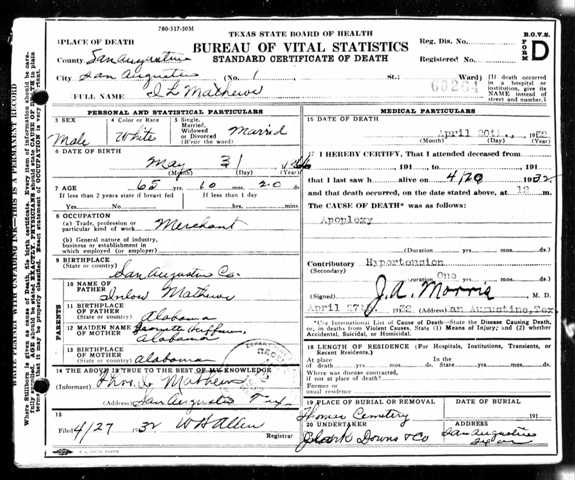 780-317-30M
TEXAS STATE BOARD OF HEALTH
BUREAU OF VITAL STATISTICS
STANDARD CERTIFICATE OF DEATH
B.O.V.S.
FORM D
Reg. Dis. No.
Registered No.
PLACE OF DEATH
County San Augustine
City San Augustine (No. 1 St.; Ward)
(If death occurred in a hospital or institution, give its NAME instead of street and number.)
FULL NAME Mathews
PERSONAL AND STATISTICAL PARTICULARS
3 SEX Male
4 Color or Race White
5 Single, Married, Widowed or Divorced (Write the word) Married
6 DATE OF BIRTH
May 31
(Month) (Day) (Year)
7 AGE 65 yrs. 10 mos. 20 ds.
If less than 2 years state if breast fed If less than 1 day
Yes No hrs. min.
8 OCCUPATION
(a) Trade, profession, or particular kind of work Merchant
(b) General nature of industry, business or establishment in which employed (or employer)
9 BIRTHPLACE
(State or country) San Augustine Co.
10 NAME OF FATHER Mathews
11 BIRTHPLACE OF FATHER
(State or country) Alabama
12 MAIDEN NAME OF MOTHER
Alabama
13 BIRTHPLACE OF MOTHER
(State or country) Alabama
14 THE ABOVE IS TRUE TO THE BEST OF MY KNOWLEDGE
(Informant) Mathews
(Address) San Augustine Tex
15
Filed 4/27 1932 W H Allen
Registrar
MEDICAL PARTICULARS
15 DATE OF DEATH
April 20th
(Month) (Day) (Year)
I HEREBY CERTIFY, That I attended deceased from
191 , to 191
that I last saw h alive on 4/20 1932
and that death occurred, on the date stated above, at 12 m.
The CAUSE OF DEATH* was as follows:
Apoplexy
(Duration) yrs. mos. ds.
Contributory Hypertension
(Secondary)
(Duration One yrs. mos. ds.
(Signed) J. A. Morris M. D.
April 27th (Address) an Augustine, Tex.
*The International List of Cause of Death—State the Disease Causing Death, or, in deaths from Violent Causes, State (1) Means of Injury; and (2) whether Accidental, Suicidal, or Homicidal.
18 LENGTH OF RESIDENCE (For Hospitals, Institutions, Transients, or Recent Residents.)
At place of death yrs. mos. ds. In the State yrs. mos. ds.
Where was disease contracted, if not at place of death?
Former or usual residence
19 PLACE OF BURIAL OR REMOVAL
DATE OF BURIAL
Cemetery 191
20 UNDERTAKER
Clark Downs & Co
ADDRESS
San Augustine
Texas